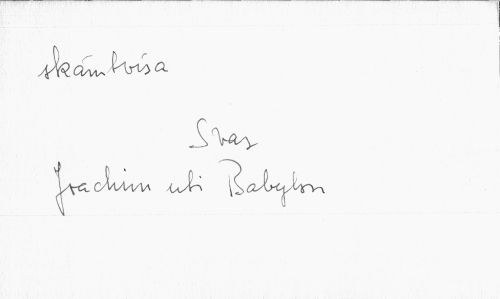 skämtvisa
Svar
Joachim uti Babylon